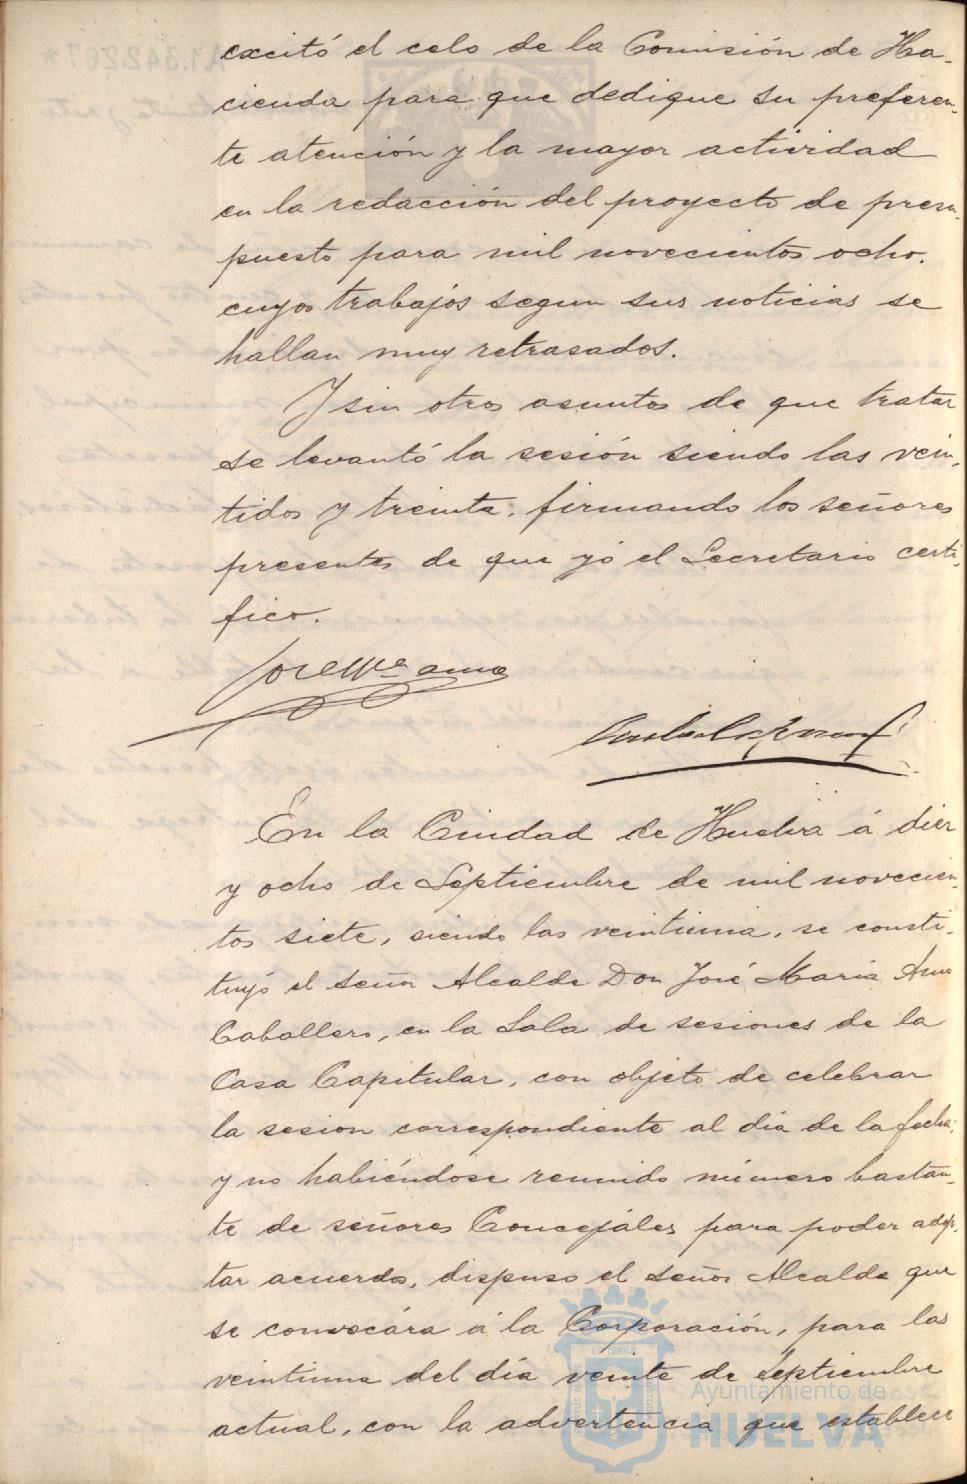 excitó el celo de la Comisión de Ha-
cienda para que dedique su preferen-
te atención y la mayor actividad
en la redacción del proyecto de presu-
puesto para mil novecientos ocho.
cuyos trabajos segun sus noticias se
hallan muy retrasados.
Y sin otros asuntos de que tratar
se levantó la sesión siendo las vein-
tidos y treinta, firmando los señores
presentes de que yó el Secretario certi-
fico.
José Mª amo
En la Ciudad de Huelva á diez
y ocho de Septiembre de mil novecien-
tos siete, siendo las veintiuna, se consti-
tuyó el señor Alcalde Don José Maria Amo
Caballero, en la Sala de sesiones de la
Casa Capitular, con objeto de celebrar
la sesion correspondiente al dia de la fecha;
y no habiéndose reunido número bastan-
te de señores Concejáles para poder adop-
tar acuerdos, dispuso el señor Alcalde que
se convocára á la Corporación, para las
veintiuna del día veinte de Septiembre
actual, con la advertencia que establece
Ayuntamiento de
HUELVA